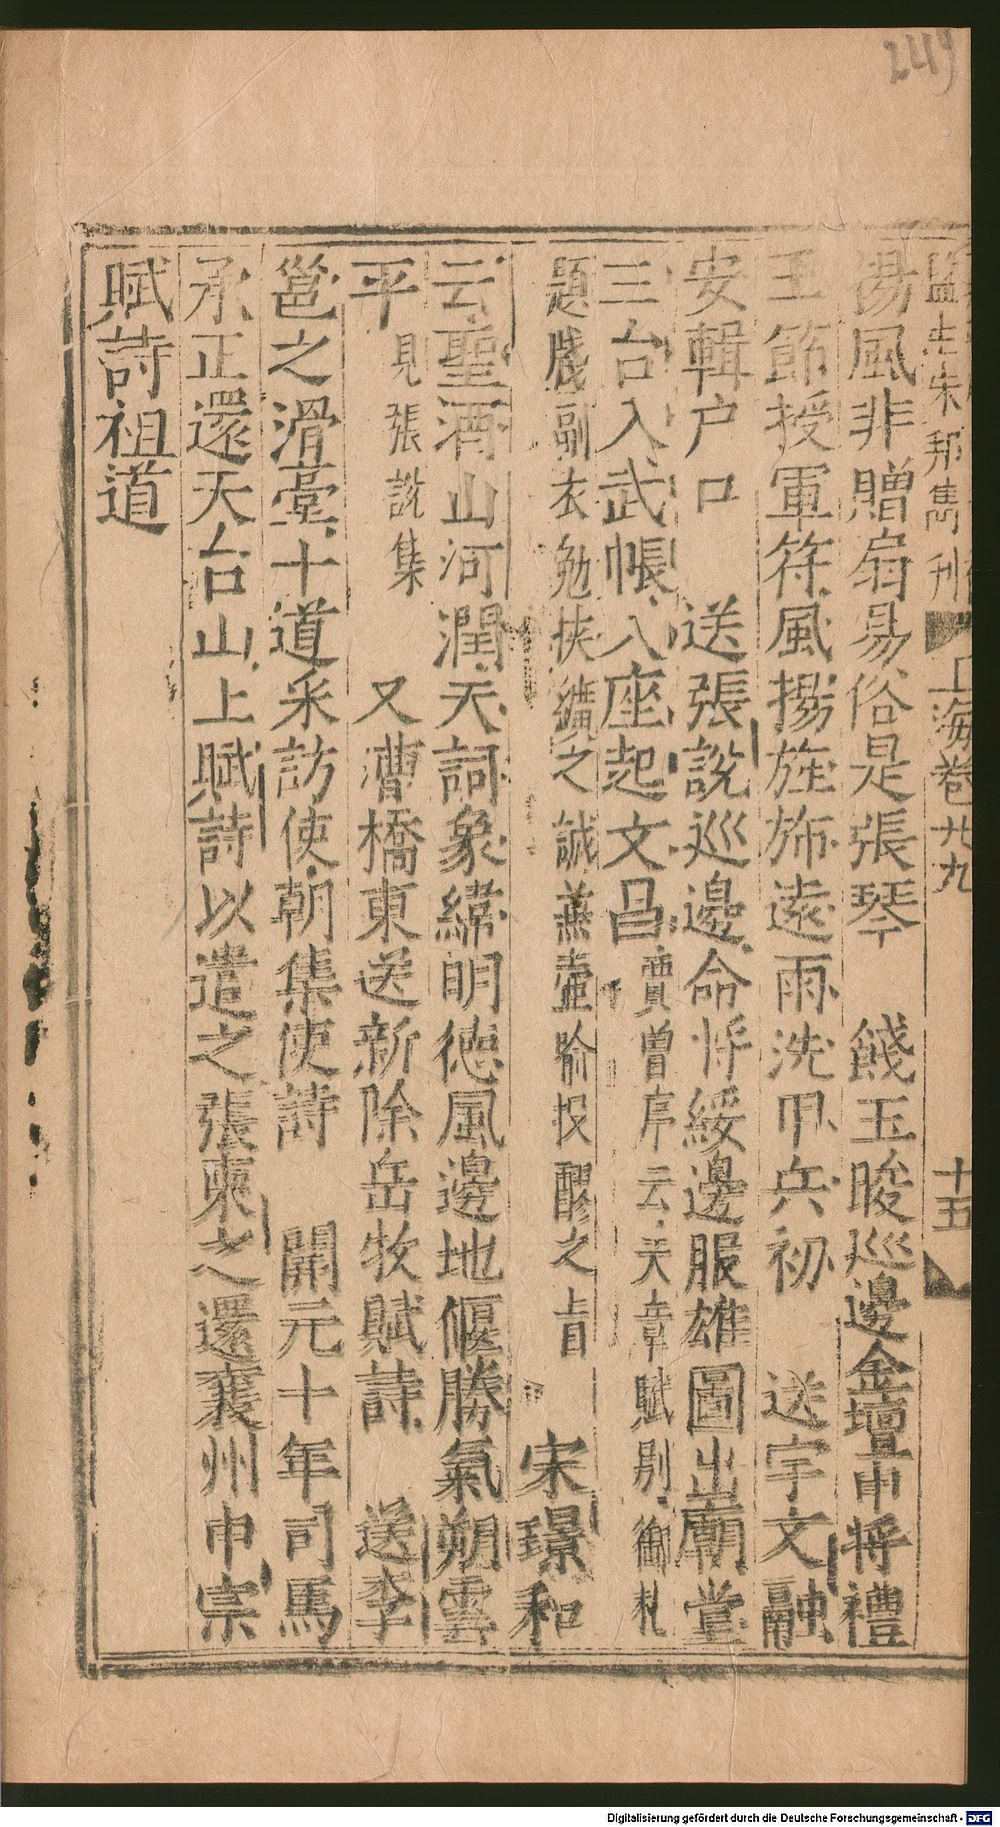 249
監生朱邦雋刊 玉海卷廿九 十五
湯風非贈扇易俗是張琴 餞王晙巡邊金壇申將禮
玉節授軍符風揚旌斾遠雨洗甲兵初 送宇文融
安輯户口 送張說巡邊命將綏邊服雄圖出廟堂
三台入武帳八座起文昌賈曾序云天章賦别御札
題牋副衣勉挾纊之誠蕪壷喻投醪之旨 宋璟和
云聖酒山河潤天詞象緯明德風邊地偃勝氣朔雲
平見張說集 又漕橋東送新除岳牧賦詩 送李
邕之滑臺十道采訪使朝集使詩 開元十年司馬
承正還天台山上賦詩以遣之張柬之還襄州中宗
賦詩祖道
Digitalisierung gefördert durch die Deutsche Forschungsgemeinschaft - DFG